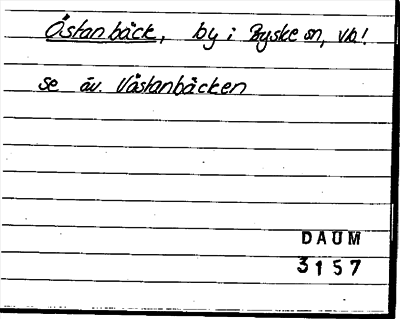 Östanbäck, by i Byske sn, Vb!
se äv. Västanbäcken
DAUM
3157